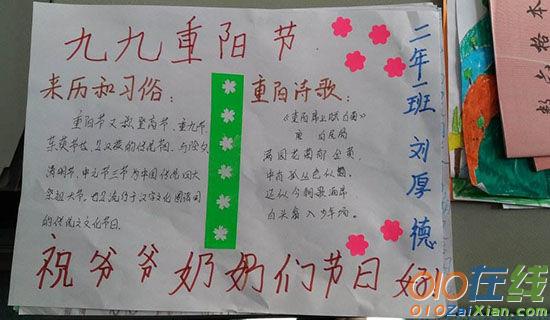 九九重阳节
来历和习俗：
重阳节又叫登高节、重九节、
茱萸节，也是汉族的传统节日，与除夕、
清明节、中元节三节为中国传统四大
祭祖大节，也是流行于汉字文化圈诸国
的传统文化节日。
重阳诗歌：
唐
满园花菊郁金黄，
中有孤丛色似霜。
还似今朝歌酒席，
白头翁入少年场。
二年一班 刘厚德
祝爷爷奶奶们节日好
数学格本
010在线
010ZaiXian.com